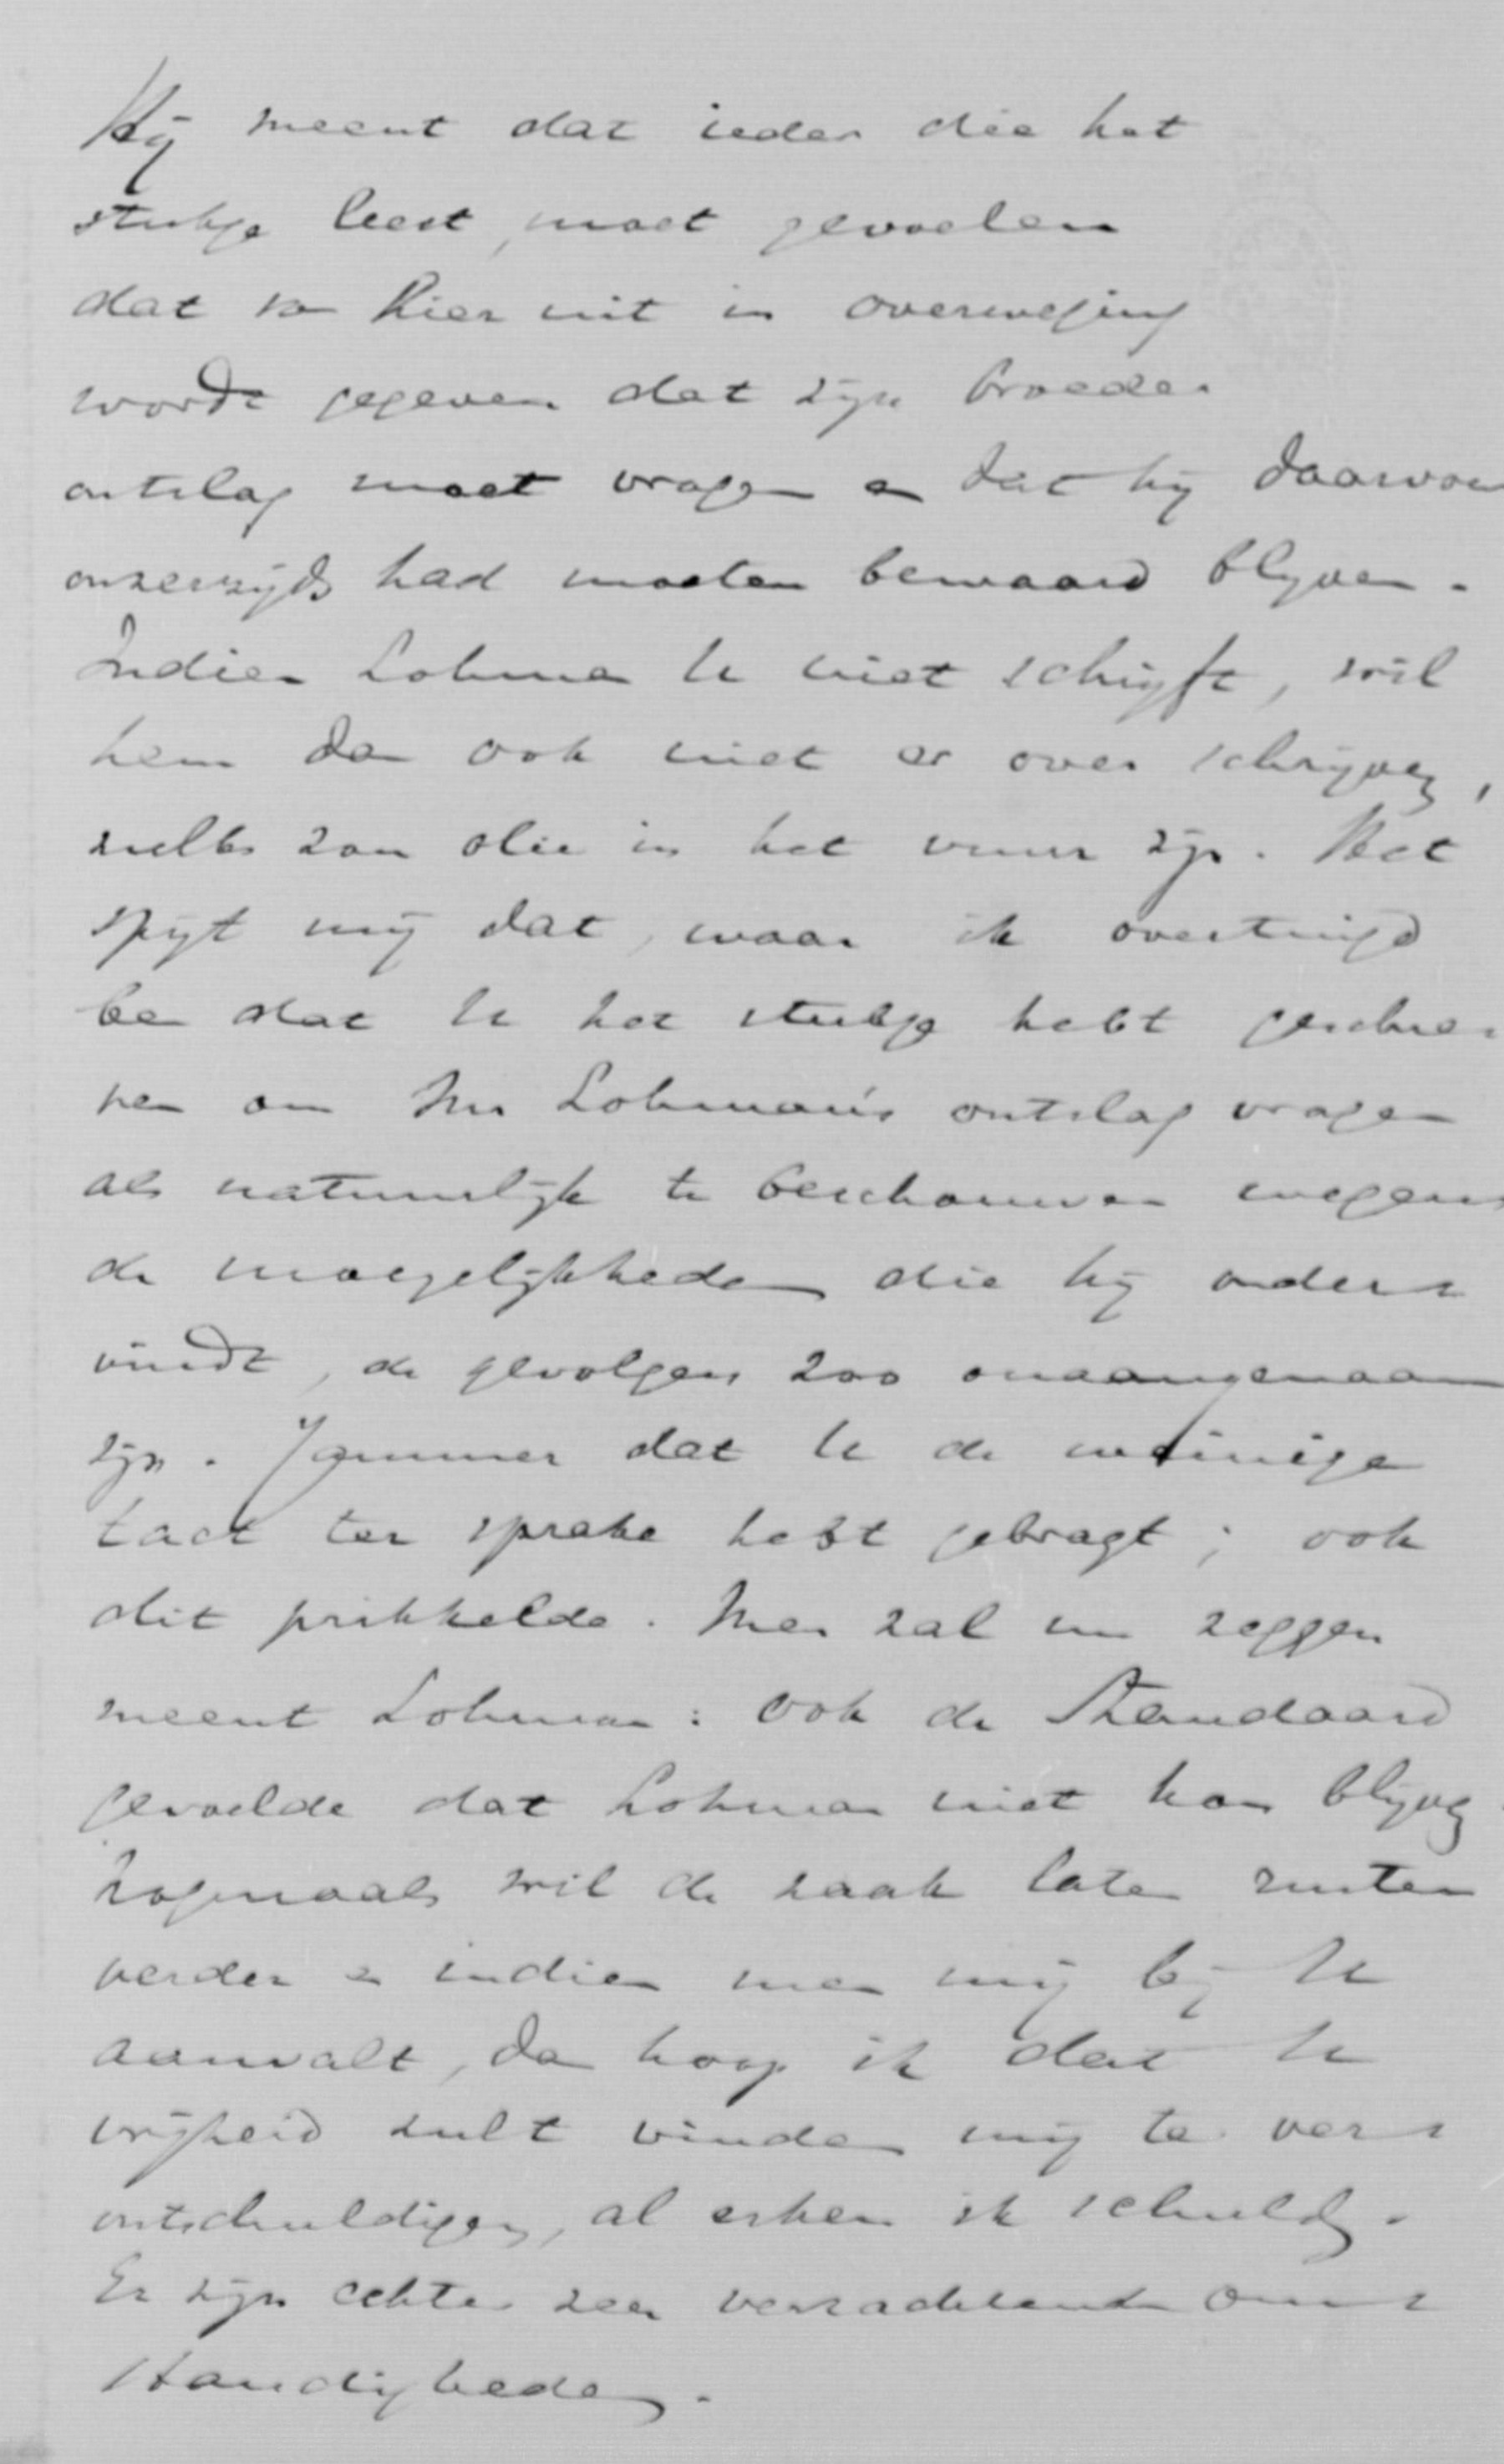 Hij meent dat ieder die het
stukje leest, moet gevoelen
dat van hier uit in overweging
wordt gegeven dat zijn broeder
ontslag moet vragen en dat hij daarvoor
onzerzijds had moeten bewaard blijven.
Indien Lohman U niet schrijft, wil
hem dan ook niet er over schrijven,
zulks zou olie in het vuur zijn. Het
spijt mij dat, waar ik overtuigd
ben dat U het stukje hebt geschre-
ven om Mr Lohman's ontslag vragen
als natuurlijk te beschouwen wegens
de moeyelijkheden die hij onder-
vindt, de gevolgen zoo onaangenaam
zijn. Jammer dat U de weinige
tact ter sprake hebt gebragt; ook
dit prikkelde. Men zal nu zeggen
meent Lohman: ook de Standaard
gevoelde dat Lohman niet kan blijven
Nogmaals wil de zaak laten rusten
verder en indien men mij bij U
aanvalt, dan hoop ik dat U
vrijheid zult vinden mij te ver-
ontschuldigen, al erken ik schuld.
Er zijn echter zeer verzachtende om-
standigheden.